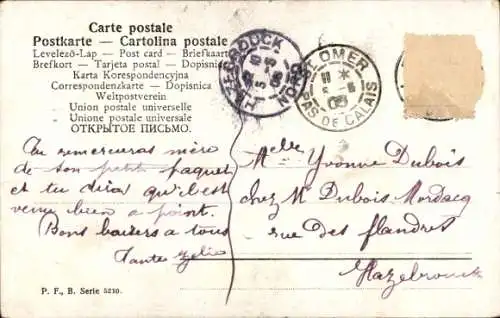 Carte postale
Postkarte — Cartolina postale
Levelező-Lap — Post card — Briefkaart
Brefkort — Tarjeta postal — Dopisnica
Karta Korespondencyjna
Correspondenzkarte — Dopisnica
Weltpostverein
Union postale universelle
Unione postale universale
ОТКРЫТОЕ ПИСЬМО.
HAZEBROUCK
NORD
ST OMER
PAS DE CALAIS
Tu remercieras mère
de son petit paquet
et tu diras qu'il est
venu bien à point.
Bons baisers à tous
Tante Zélie
Melle Yvonne Dubois
chez M Dubois-Mordacq
rue des flandres
Hazebrouck
P. F., B. Serie 5230.